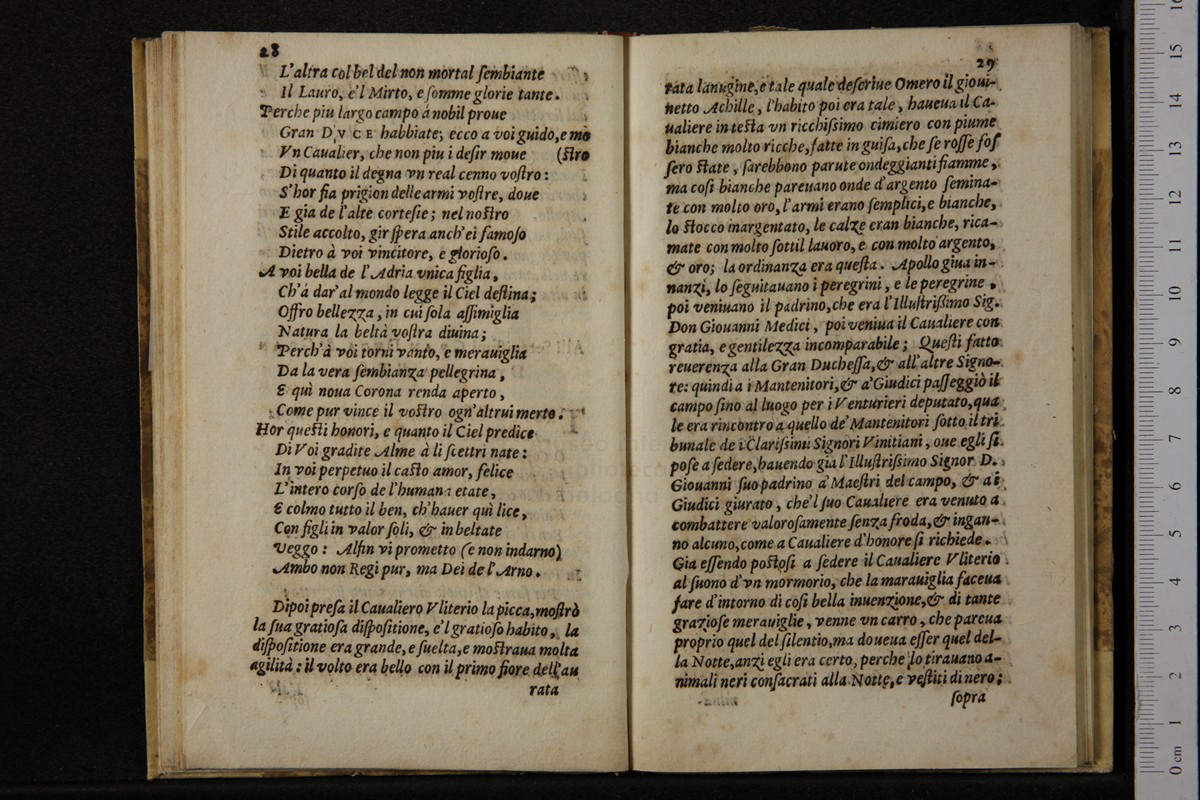 28
L'altra col bel del non mortal ſembiante
Il Lauro, e'l Mirto, e ſomme glorie tante.
Perche piu largo campo á nobil proue
Gran DVCE habbiate; ecco a voi guido, e mo
Vn Caualier, che non piu i deſir moue (ſtro
Di quanto il degna vn real cenno voſtro:
S'hor fia prigion delle armi voſtre, doue
E gia de l'alte corteſie; nel noſtro
Stile accolto, gir ſpera anch'ei famoſo
Dietro à voi vincitore, e glorioſo.
A voi bella de l'Adria vnica figlia,
Ch'á dar'al mondo legge il Ciel deſtina;
Offro bellezza, in cui ſola aſſimiglia
Natura la beltà voſtra diuina;
Perch'à voi torni vanto, e merauiglia
Da la vera ſembianza pellegrina,
E quì noua Corona renda aperto,
Come pur vince il voſtro ogn'altrui merto.
Hor queſti honori, e quanto il Ciel predice
Di Voi gradite Alme à li ſcettri nate:
In voi perpetuo il caſto amor, felice
L'intero corſo de l'humana etate,
E colmo tutto il ben, ch'hauer quì lice,
Con figli in valor ſoli, & in beltate
Veggo: Alfin vi prometto (e non indarno)
Ambo non Regi pur, ma Dei de l'Arno.
Dipoi preſa il Caualiero Vliterio la picca, moſtrò
la ſua gratioſa diſpoſitione, e'l gratioſo habito, la
diſpoſitione era grande, e ſuelta, e moſtraua molta
agilità: il volto era bello con il primo fiore dell'au
rata
29
rata lanugine, e tale quale deſcriue Omero il gioui-
netto Achille, l'habito poi era tale, haueua il Ca-
ualiere in teſta vn ricchiſsimo cimiero con piume
bianche molto ricche, fatte in guiſa, che ſe roſſe foſ
ſero ſtate, ſarebbono parute ondeggianti fiamme,
ma coſi bianche pareuano onde d'argento ſemina-
te con molto oro, l'armi erano ſemplici, e bianche,
lo ſtocco inargentato, le calze eran bianche, rica-
mate con molto ſottil lauoro, e con molto argento,
& oro; la ordinanza era queſta. Apollo giua in-
nanzi, lo ſeguitauano i peregrini, e le peregrine,
poi veniuano il padrino, che era l'Illuſtriſsimo Sig.
Don Giouanni Medici, poi veniua il Caualiere con
gratia, e gentilezza incomparabile; Queſti fatto
reuerenza alla Gran Ducheſſa, & all'altre Signo-
re: quindi a i Mantenitori, & a'Giudici paſſeggiò il
campo ſino al luogo per i Venturieri deputato, qua
le era rincontro a quello de'Mantenitori ſotto il tri
bunale de i Clariſsimi Signori Vinitiani, oue egli ſi
poſe a ſedere, hauendo gia l'Illuſtriſsimo Signor D.
Giouanni ſuo padrino a'Maeſtri del campo, & a i
Giudici giurato, che'l ſuo Caualiere era venuto a
combattere valoroſamente ſenza froda, & ingan-
no alcuno, come a Caualiere d'honore ſi richiede.
Gia eſſendo poſtoſi a ſedere il Caualiere Vliterio
al ſuono d'vn mormorio, che la marauiglia faceua
fare d'intorno di coſi bella inuenzione, & di tante
grazioſe merauiglie, venne vn carro, che pareua
proprio quel del ſilentio, ma doueua eſſer quel del-
la Notte, anzi egli era certo, perche lo tirauano a-
nimali neri conſacrati alla Notte, e veſtiti di nero;
ſopra
0 cm 1 2 3 4 5 6 7 8 9 10 11 12 13 14 15 16